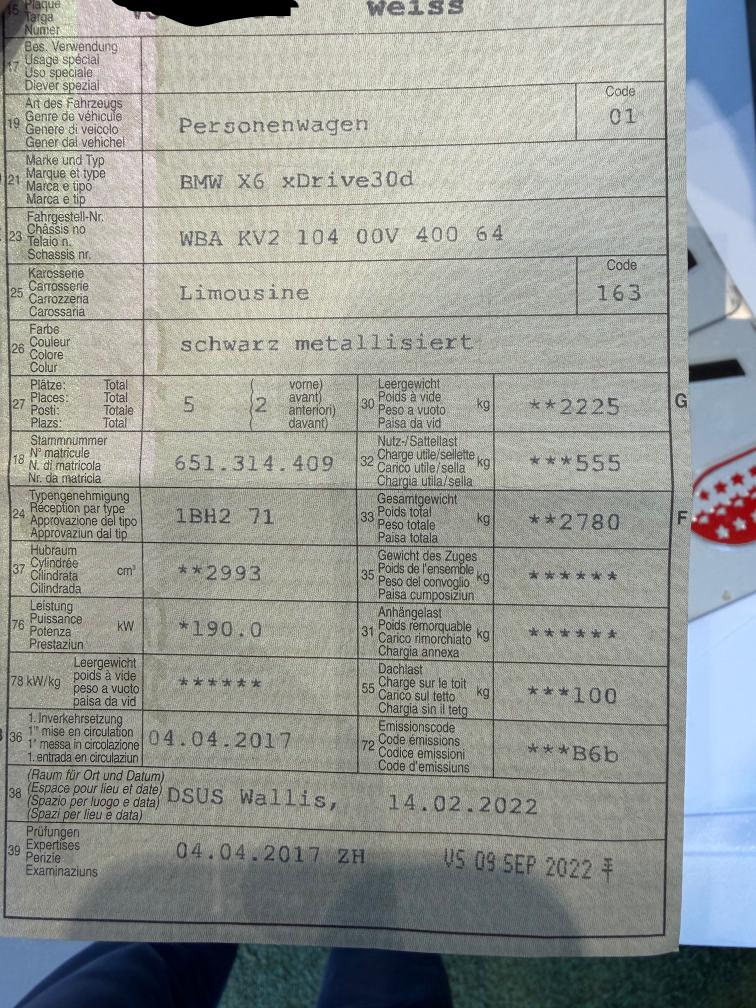 15 Plaque
Targa
Numer
weiss
17 Bes. Verwendung
Usage spécial
Uso speciale
Diever spezial
19 Art des Fahrzeugs
Genre de véhicule
Genere di veicolo
Gener dal vehichel
Personenwagen
Code
01
21 Marke und Typ
Marque et type
Marca e tipo
Marca e tip
BMW X6 xDrive30d
23 Fahrgestell-Nr.
Châssis no
Telaio n.
Schassis nr.
WBA KV2 104 00V 400 64
25 Karosserie
Carrosserie
Carrozzeria
Carossaria
Limousine
Code
163
26 Farbe
Couleur
Colore
Colur
schwarz metallisiert
27 Plätze: Total
Places: Total
Posti: Totale
Plazs: Total
5 (2 vorne)
avant)
anteriori)
davant)
30 Leergewicht
Poids à vide
Peso a vuoto
Paisa da vid
kg
**2225
G
18 Stammnummer
N° matricule
N. di matricola
Nr. da matricla
651.314.409
32 Nutz-/Sattellast
Charge utile/sellette
Carico utile/sella
Chargia utila/sella
kg
***555
24 Typengenehmigung
Réception par type
Approvazione del tipo
Approvaziun dal tip
1BH2 71
33 Gesamtgewicht
Poids total
Peso totale
Paisa totala
kg
**2780
F
37 Hubraum
Cylindrée
Cilindrata
Cilindrada
cm³
**2993
35 Gewicht des Zuges
Poids de l'ensemble
Peso del convoglio
Paisa cumposiziun
kg
******
76 Leistung
Puissance
Potenza
Prestaziun
kW
*190.0
31 Anhängelast
Poids remorquable
Carico rimorchiato
Chargia annexa
kg
******
78 kW/kg Leergewicht
poids à vide
peso a vuoto
paisa da vid
******
55 Dachlast
Charge sur le toit
Carico sul tetto
Chargia sin il tetg
kg
***100
36 1. Inverkehrsetzung
1re mise en circulation
1a messa in circolazione
1. entrada en circulaziun
04.04.2017
72 Emissionscode
Code émissions
Codice emissioni
Code d'emissiuns
***B6b
38 (Raum für Ort und Datum)
(Espace pour lieu et date)
(Spazio per luogo e data)
(Spazi per lieu e data)
DSUS Wallis, 14.02.2022
39 Prüfungen
Expertises
Perizie
Examinaziuns
04.04.2017 ZH
VS 09 SEP 2022